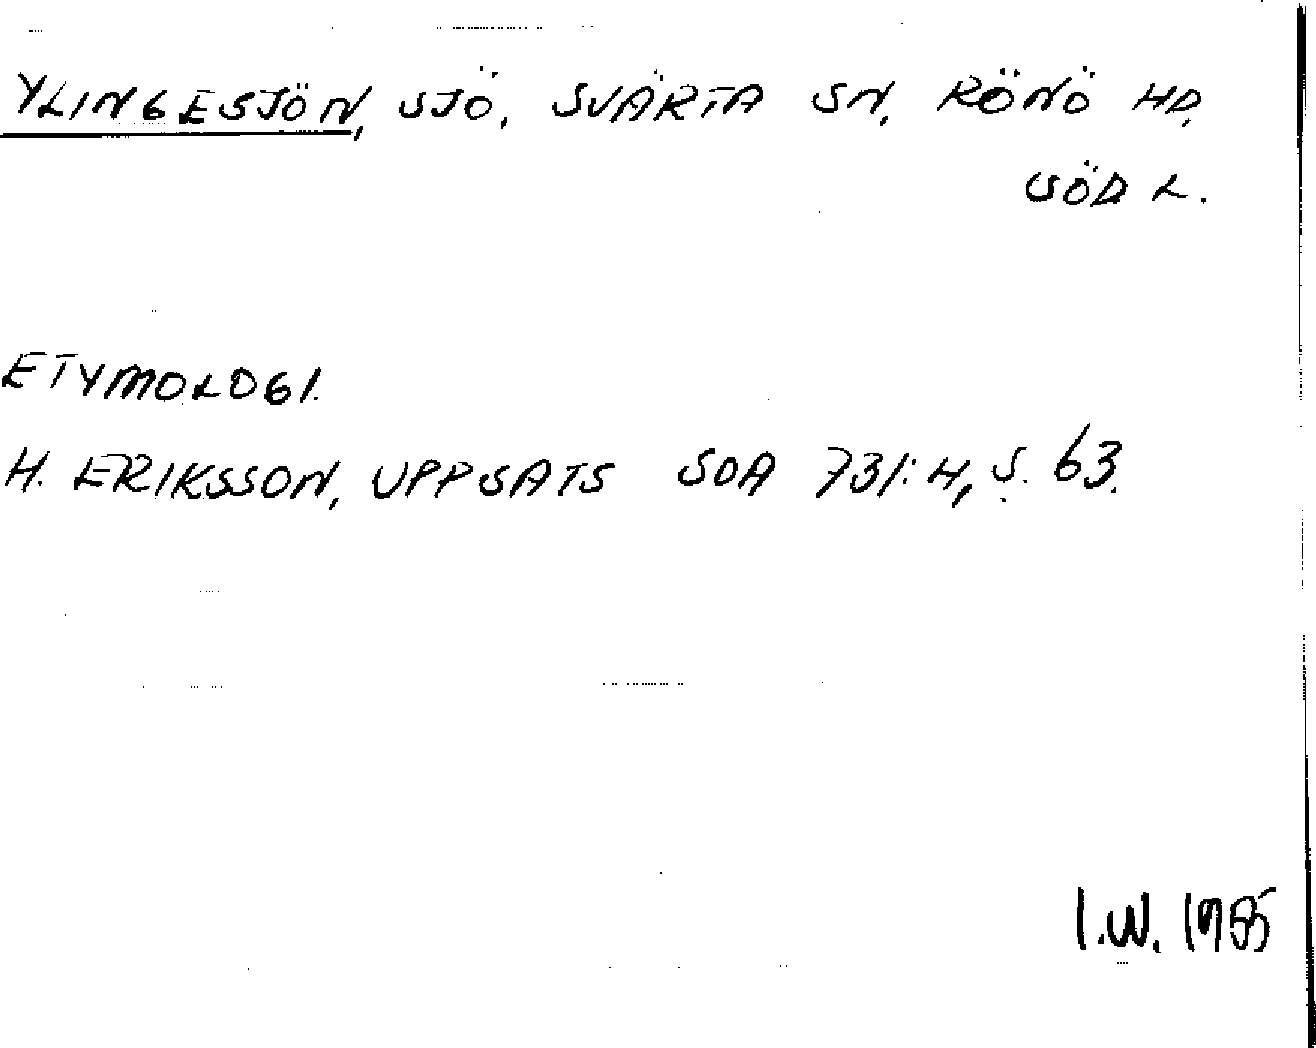 YLINGESJÖN, SJÖ, SVÄRTA SN, RÖNÖ HD,
SÖD L.
ETYMOLOGI.
H. ERIKSSON, UPPSATS SOA 731:H, S. 63.
I.W. 1985